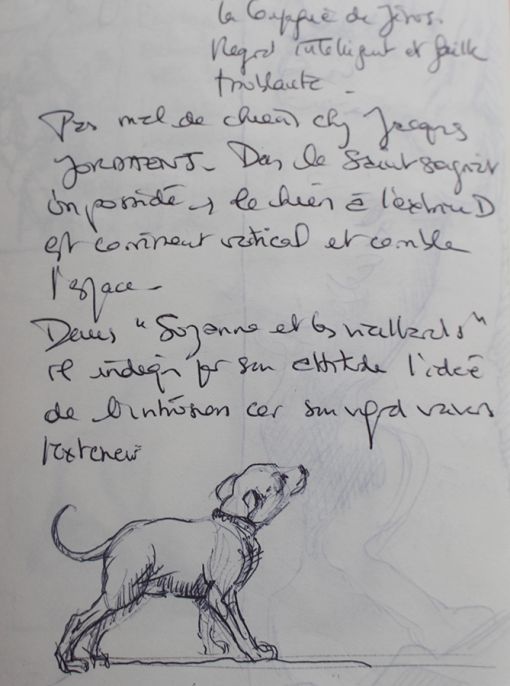 la Compagnie de Jésus.
Regard intelligent et faille
troublante -
Pas mal de chiens chez Jacques
JORDAENS. Dans le Saint soignant
un possédé → le chien à l'extrême D
est carrément vertical et comble
l'espace -
Dans "Suzanne et les vieillards"
il indique par son attitude l'idée
de l'intrusion car son regard vers
l'extérieur